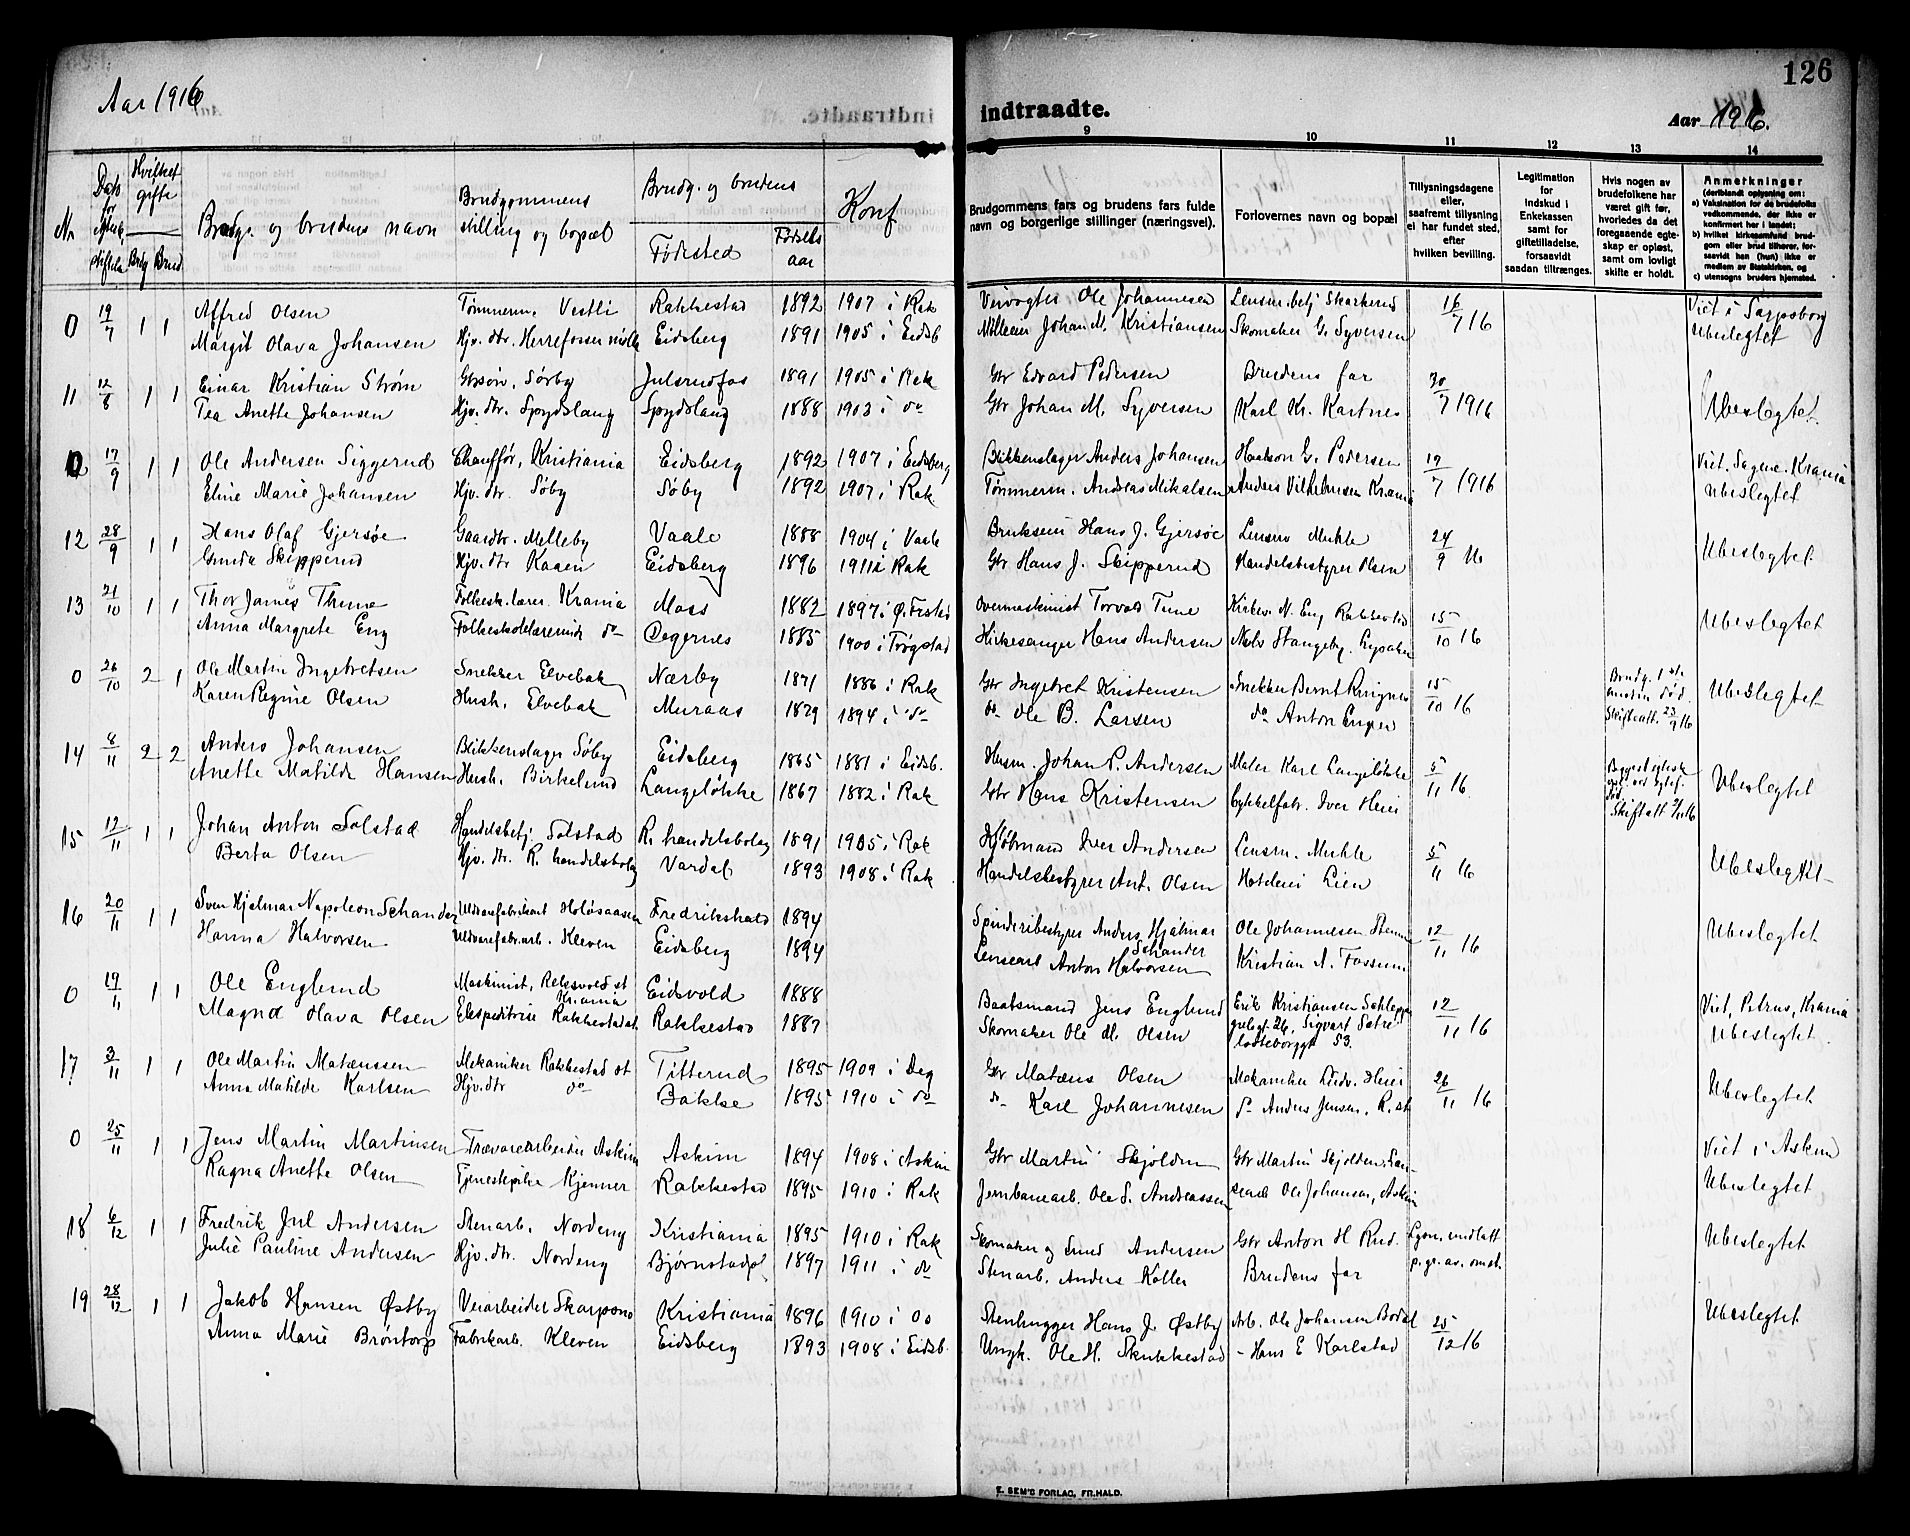 Aar 1916
126
indtraadte.
Aar 1916.
9 10 11 12 13 14
Nr. Hvilket gifte Brudg. og brudens navn Brudgommens stilling og bopæl Brudg. og brudens Fødested Fødselsaar Konf
Brudg Brud
Brudgommens fars og brudens fars fulde navn og borgerlige stillinger (næringsvei).
Forlovernes navn og bopæl
Tillysningsdagene eller, saafremt tillysning ei har fundet sted, efter hvilken bevilling.
Legitimation for Indskud i Enkekassen samt for giftetilladelse, forsaavidt saadan tiltrænges.
Hvis nogen av brudefolkene har været gift før, hvorledes da det foregaaende egteskap er opløst, samt om lovligt skifte er holdt.
Anmerkninger (deriblandt oplysning om: a) Vaksination for de brudefolks vedkommende, der ikke er konfirmert her i landet; b) hvilket kirkesamfund brudgom eller brud tilhører, forsaavidt han (hun) ikke er medlem av Statskirken, og c) utensogns bruders hjemsted.
0 19/7 1 1 Alfred Olsen Tømmerm. Vestli Rakkestad 1892 1907 i Rak Ole Johannesen Lensm. betj. Skarkerud 16/7 16 Viet i Sarpsborg
Margit Olava Johansen Hjv. dtr. Herrefossen mølle Eidsberg 1891 1905 i Eidsb Johan M. Kristiansen Skomaker G. Syversen Ubeslegtet
11 12/8 1 1 Einar Kristian Strøm Grsøn, Sørby Julsrudfos 1891 1905 i Rak Gbr Edvard Pedersen Brudens far 30/7 1916 Ubeslegtet.
Tea Anette Johansen Hjv. dtr. Spydslaug Spydslaug 1888 1903 i do Gbr Johan M. Syversen Karl Kr. Kartnes
0 17/9 1 1 Ole Andersen Siggerud Chauffør, Kristiania Eidsberg 1892 1907 i Eidsberg Blikkenslager Anders Johansen G. Pedersen 19/7 1916 Viet. Sagene. Krania
Eline Marie Johansen Hjv. dtr. Søby Søby 1892 1907 i Rak Tømmerm. Andreas Mikalsen Anders Vilhelmsen Krania Ubeslegtet
12 28/9 1 1 Hans Olaf Gjersøe Gaardbr. Melleby Vaale 1888 1904 i Vaale Brukseier Hans J. Gjersøe Lensm Muhle 24/9 16 Ubeslegtet
Gunda Skipperud Hjv. dtr Kaaen Eidsberg 1896 1911 i Rak Gbr Hans J. Skipperud Handelsbestyrer Olsen
13 21/10 1 1 Thor James Thune Folkesk.lærer. Krania Moss 1882 1897 i Ø. Fr.stad Overmaskinist Torvald Tune Kirkes. N. Eng Rakkestad 15/10 16 Ubeslegtet
Anna Margrete Eng Folkeskolelærerinde do Degernes 1885 1900 i Trøgstad Kirkesanger Hans Andersen Nels Stangeby. Lysaker
0 26/10 2 1 Ole Martin Ingebretsen Snekker Elvebak Nærby 1871 1886 i Rak Gbr Ingebret Kristensen Snekker Bernt Ringnes 15/10 16 Brudg. 1ste hustru død. Ubeslegtet
Karen Regine Olsen Hush. Elvebak Muraas 1879 1894 i do do Ole B. Larsen do Anton Enger Skifteatt. 23/9 16
14 8/11 2 2 Anders Johansen Blikkenslager Søby Eidsberg 1865 1881 i Eidsb. Husm. Johan P. Andersen Maler Karl Langeløkke 5/11 16 Begges egtesk. opl. ved egtef. død. Ubeslegtet
Anette Matilde Hansen Hush. Birkelund Langeløkke 1867 1882 i Rak Gbr Hans Kristensen Cykkelfabr. Iver Heier Skifteatt 2/11 16
15 12/11 1 1 Johan Anton Solstad Handelsbetj. Solstad R. handelsbolag 1891 1905 i Rak Kjøbmand Iver Andersen Lensm. Muhle 5/11 16 Ubeslegtet
Berta Olsen Hjv. dtr. R. handelsbolag Vardal 1893 1908 i Rak Handelsbestyrer Ant. Olsen Hoteleier Lien
16 20/11 1 1 Sven Hjelmar Napoleon Schander Uldvarefabrikant Holøsaasen Fredrikshald 1894 Spinderibestyrer Anders Hjalmar Schander Ole Johannesen 12/11 16 Ubeslegtet
Hanna Halvorsen Uldvarefabr.arb. Kleven Eidsberg 1894 Lensearb Anton Halvorsen Kristian A. Fossum
0 19/11 1 1 Ole Englund Maskinist, Krania Eidsvold 1888 Baatsmand Jens Englund Erik Kristiansen 12/11 16 Viet, Petrus, Krania
Magna Olava Olsen Ekspeditrise Rakkestad st. Rakkestad 1887 Skomaker Ole M. Olsen 26, Sigvart Sætre Gøteborggt 53. Ubeslegtet.
17 3/11 1 1 Ole Martin Matæussen Mekaniker Rakkestad st Titterud 1895 1909 i Deg Gbr Matæus Olsen Mekaniker Ludv. Heier 26/11 16 Ubeslegtet
Anna Matilde Karlsen Hjv. dtr do Bakke 1895 1910 i do do Karl Johannesen do Anders Jensen, R. st
0 25/11 1 1 Jens Martin Martinsen Trævarearbeider Askim Askim 1894 1908 i Askim Gbr Martin Skjolden Gbr Martin Skjolden, Viet i Askim
Ragna Anette Olsen Tjenestepike Kjenner Rakkestad 1895 1910 i Rak Jernbanearb. Ole S. Andreassen Ole Johansen, Askim Ubeslegtet
18 6/12 1 1 Fredrik Jul Andersen Stenarb. Nordeng Kristiania 1895 1910 i Rak Skomaker og Smed Andersen Gbr Anton H Rud. Lysn. undlatt p. gr. av. omst. Ubeslegtet
Julie Pauline Andersen Hjv. dtr. Nordeng Bjørnstadpl 1897 1911 i do Stenarb. Anders Koller Brudens far
19 28/12 1 1 Jakob Hansen Østby Veiarbeider Skarpsno Kristiania 1896 1910 i do Stenhugger Hans J. Østby Arb. Ole Johansen Bodal 25/12 16 Ubeslegtet
Anna Marie Brøntorp Fabrikarb. Kleven Eidsberg 1893 1908 i Eidsb. Ungk. Ole H. Skukkestad - Hans E Karlstad
E. SEM'S FORLAG, FR.HALD.